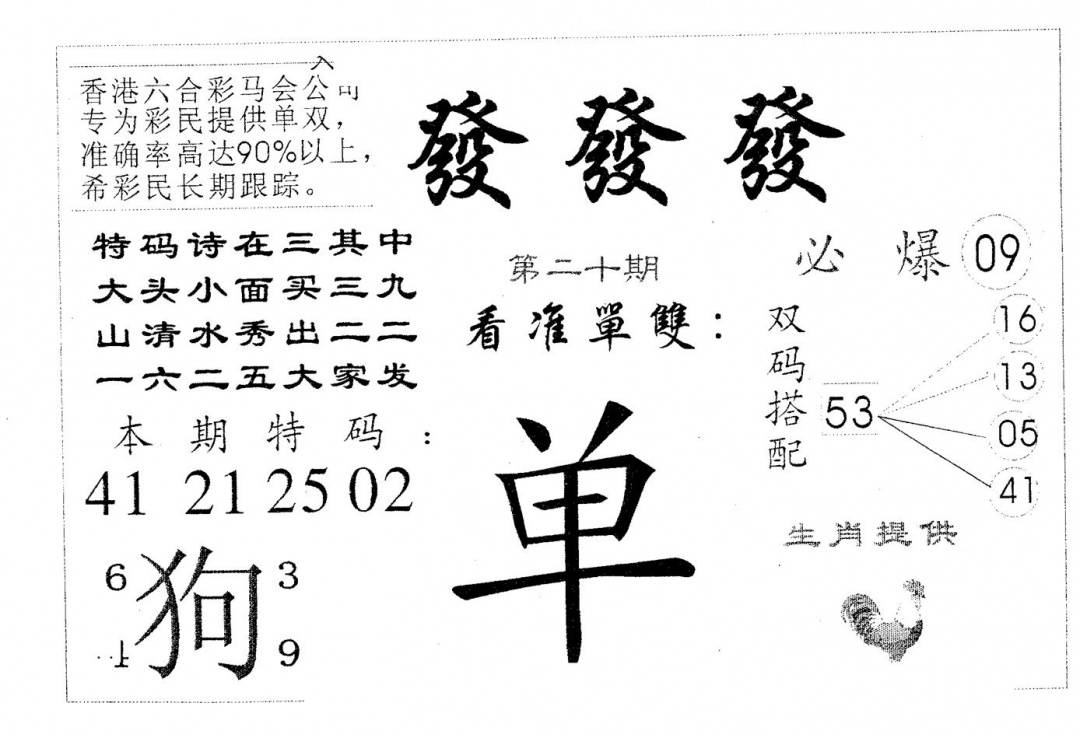 香港六合彩马会公司
专为彩民提供单双，
准确率高达90%以上，
希彩民长期跟踪。
發 發 發
特码诗在三其中
大头小面买三九
山清水秀出二二
一六二五大家发
第二十期
看准單雙：
单
必 爆 09
双码搭配
53
16
13
05
41
本期特码：
41 21 25 02
6 狗 3
9
生肖提供